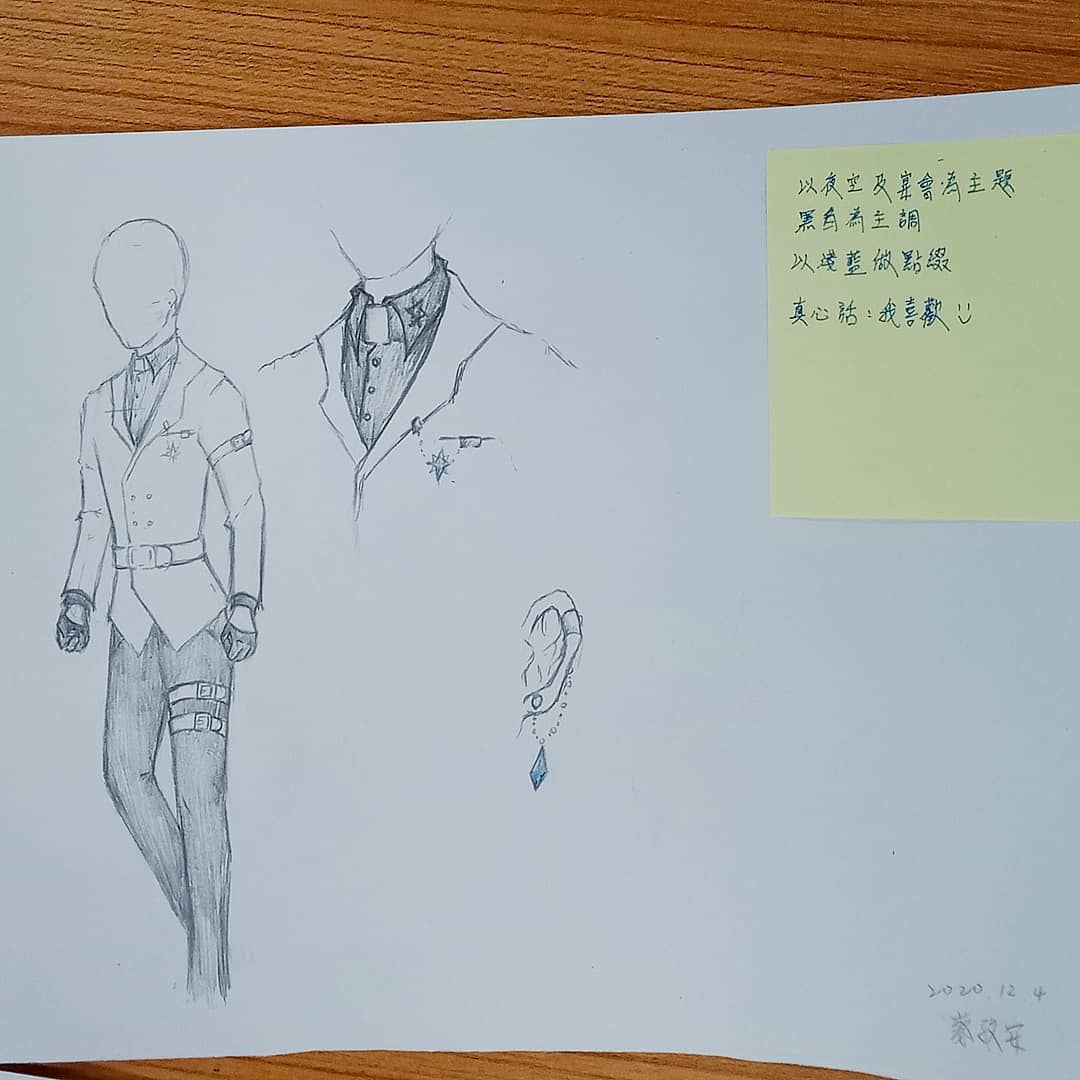 以夜空及宴會為主題
黑白為主調
以淺藍做點綴
真心話：我喜歡 :)
2020.12 4
蔡政安